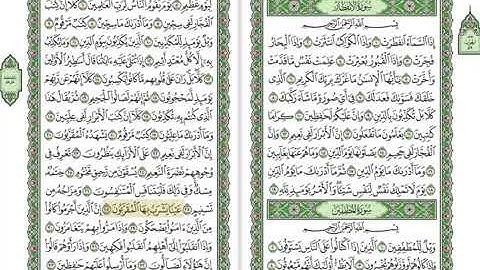 سُورَةُ الانفِطَارِ
بِسْمِ اللَّهِ الرَّحْمَٰنِ الرَّحِيمِ
إِذَا السَّمَاءُ انفَطَرَتْ ١ وَإِذَا الْكَوَاكِبُ انتَثَرَتْ ٢ وَإِذَا الْبِحَارُ
فُجِّرَتْ ٣ وَإِذَا الْقُبُورُ بُعْثِرَتْ ٤ عَلِمَتْ نَفْسٌ مَّا قَدَّمَتْ
وَأَخَّرَتْ ٥ يَا أَيُّهَا الْإِنسَانُ مَا غَرَّكَ بِرَبِّكَ الْكَرِيمِ ٦ الَّذِي
خَلَقَكَ فَسَوَّاكَ فَعَدَلَكَ ٧ فِي أَيِّ صُورَةٍ مَّا شَاءَ رَكَّبَكَ ٨
كَلَّا بَلْ تُكَذِّبُونَ بِالدِّينِ ٩ وَإِنَّ عَلَيْكُمْ لَحَافِظِينَ ١٠ كِرَامًا
كَاتِبِينَ ١١ يَعْلَمُونَ مَا تَفْعَلُونَ ١٢ إِنَّ الْأَبْرَارَ لَفِي نَعِيمٍ ١٣ وَإِنَّ
الْفُجَّارَ لَفِي جَحِيمٍ ١٤ يَصْلَوْنَهَا يَوْمَ الدِّينِ ١٥ وَمَا هُمْ عَنْهَا بِغَائِبِينَ
١٦ وَمَا أَدْرَاكَ مَا يَوْمُ الدِّينِ ١٧ ثُمَّ مَا أَدْرَاكَ مَا يَوْمُ الدِّينِ ١٨
يَوْمَ لَا تَمْلِكُ نَفْسٌ لِّنَفْسٍ شَيْئًا وَالْأَمْرُ يَوْمَئِذٍ لِّلَّهِ ١٩
سُورَةُ المُطَفِّفِينَ
بِسْمِ اللَّهِ الرَّحْمَٰنِ الرَّحِيمِ
وَيْلٌ لِّلْمُطَفِّفِينَ ١ الَّذِينَ إِذَا اكْتَالُوا عَلَى النَّاسِ يَسْتَوْفُونَ ٢
وَإِذَا كَالُوهُمْ أَو وَّزَنُوهُمْ يُخْسِرُونَ ٣ أَلَا يَظُنُّ أُولَٰئِكَ أَنَّهُم مَّبْعُوثُونَ ٤
لِيَوْمٍ عَظِيمٍ ٥ يَوْمَ يَقُومُ النَّاسُ لِرَبِّ الْعَالَمِينَ ٦ كَلَّا إِنَّ كِتَابَ
الْفُجَّارِ لَفِي سِجِّينٍ ٧ وَمَا أَدْرَاكَ مَا سِجِّينٌ ٨ كِتَابٌ مَّرْقُومٌ ٩
وَيْلٌ يَوْمَئِذٍ لِّلْمُكَذِّبِينَ ١٠ الَّذِينَ يُكَذِّبُونَ بِيَوْمِ الدِّينِ ١١ وَمَا يُكَذِّبُ
بِهِ إِلَّا كُلُّ مُعْتَدٍ أَثِيمٍ ١٢ إِذَا تُتْلَىٰ عَلَيْهِ آيَاتُنَا قَالَ أَسَاطِيرُ
الْأَوَّلِينَ ١٣ كَلَّا بَلْ رَانَ عَلَىٰ قُلُوبِهِم مَّا كَانُوا يَكْسِبُونَ ١٤ كَلَّا إِنَّهُمْ عَن رَّبِّهِمْ
يَوْمَئِذٍ لَّمَحْجُوبُونَ ١٥ ثُمَّ إِنَّهُمْ لَصَالُو الْجَحِيمِ ١٦ ثُمَّ يُقَالُ هَٰذَا
الَّذِي كُنتُم بِهِ تُكَذِّبُونَ ١٧ كَلَّا إِنَّ كِتَابَ الْأَبْرَارِ لَفِي عِلِّيِّينَ ١٨
وَمَا أَدْرَاكَ مَا عِلِّيُّونَ ١٩ كِتَابٌ مَّرْقُومٌ ٢٠ يَشْهَدُهُ الْمُقَرَّبُونَ ٢١
إِنَّ الْأَبْرَارَ لَفِي نَعِيمٍ ٢٢ عَلَى الْأَرَائِكِ يَنظُرُونَ ٢٣ تَعْرِفُ فِي
وُجُوهِهِمْ نَضْرَةَ النَّعِيمِ ٢٤ يُسْقَوْنَ مِن رَّحِيقٍ مَّخْتُومٍ ٢٥ خِتَامُهُ
مِسْكٌ وَفِي ذَٰلِكَ فَلْيَتَنَافَسِ الْمُتَنَافِسُونَ ٢٦ وَمِزَاجُهُ مِن
تَسْنِيمٍ ٢٧ عَيْنًا يَشْرَبُ بِهَا الْمُقَرَّبُونَ ٢٨ إِنَّ الَّذِينَ أَجْرَمُوا كَانُوا
مِنَ الَّذِينَ آمَنُوا يَضْحَكُونَ ٢٩ وَإِذَا مَرُّوا بِهِمْ يَتَغَامَزُونَ ٣٠
وَإِذَا انقَلَبُوا إِلَىٰ أَهْلِهِمُ انقَلَبُوا فَكِهِينَ ٣١ وَإِذَا رَأَوْهُمْ قَالُوا
إِنَّ هَٰؤُلَاءِ لَضَالُّونَ ٣٢ وَمَا أُرْسِلُوا عَلَيْهِمْ حَافِظِينَ ٣٣